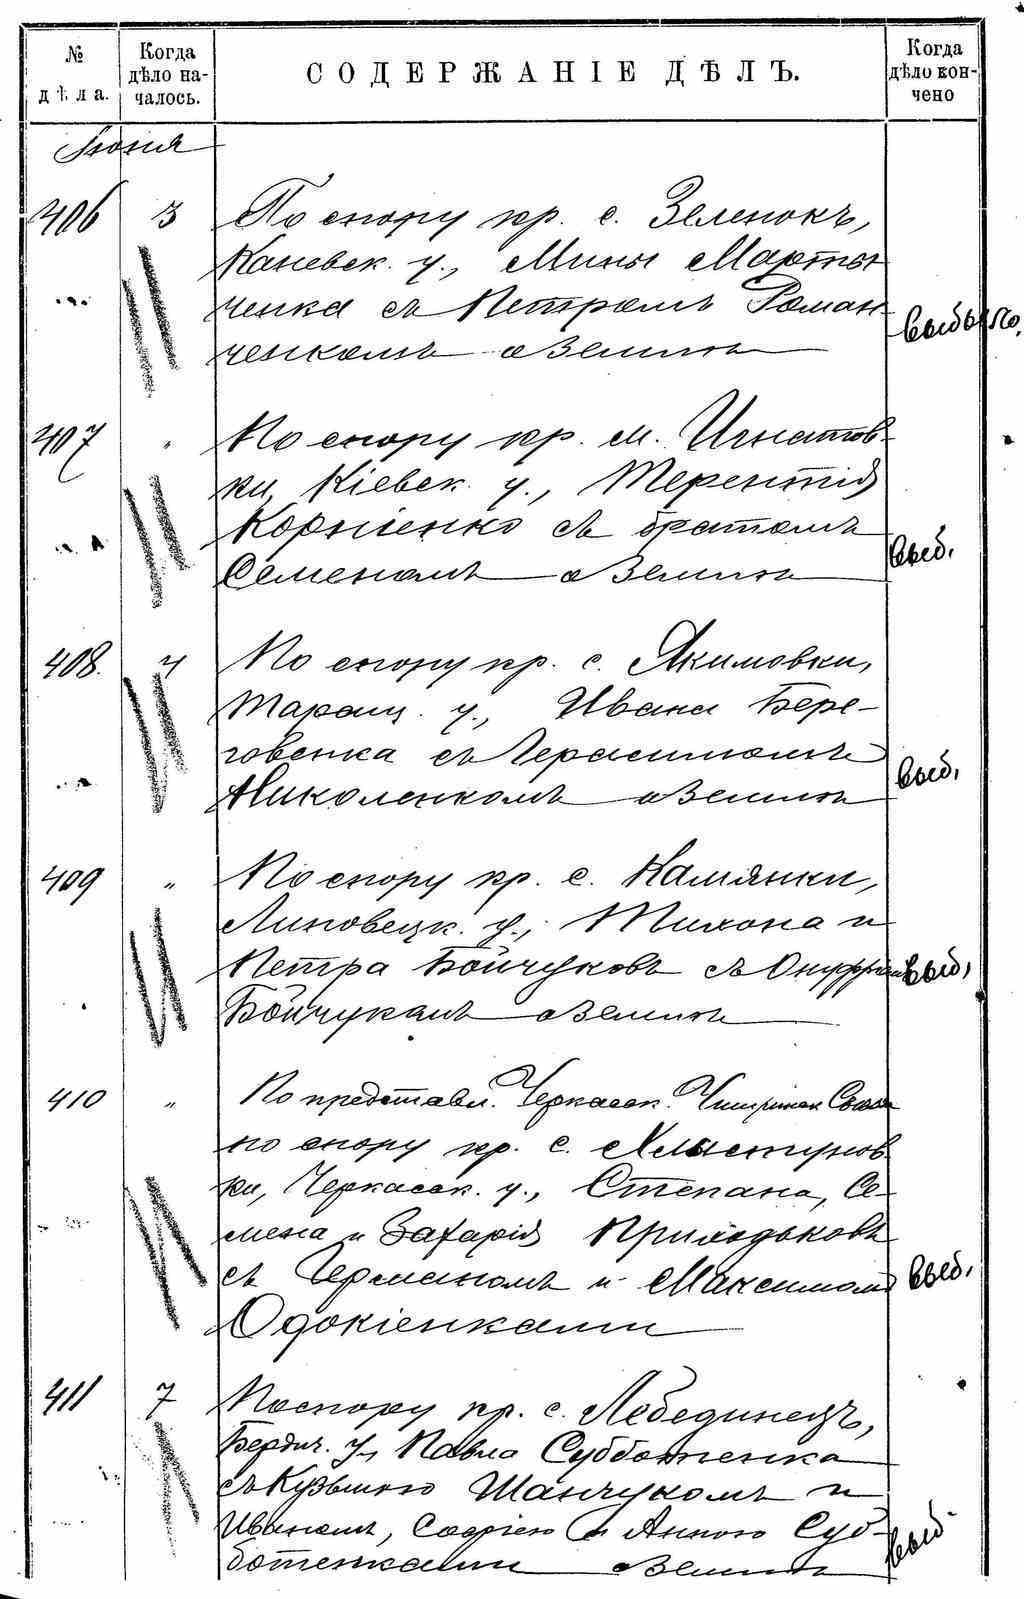 № дѣла.
Когда дѣло на-
чалось.
СОДЕРЖАНІЕ ДѢЛЪ.
Когда дѣло кон-
чено
Іюня
406 3 По спору кр. с. Зеленокъ,
Каневск. у., Мины Марты-
ченка съ Петромъ Роман-
ченкомъ о земли
выбыло.
407 " По спору кр. м. Игнатов-
ки, Кіевск. у., Терентія
Корніенко съ братомъ
Семеномъ о земли
выб.
408. 4 По спору кр. с. Якимовки,
Таращ. у., Ивана Бере-
говенка съ Герасимомъ
Николенкомъ о земли
выб.
409 " По спору кр. с. Камянки,
Липовецк. у., Тихона и
Петра Бойчуковъ съ Онуфріемъ
Бойчукомъ о земли
выб.
410 " По представл. Черкасск. Чигиринск
по спору кр. с. Хлыстунов-
ки, Черкасск. у., Степана, Се-
мена и Захарія Приходьковъ
съ Германомъ и Максимомъ
Одокіенками
выб.
411 7 По спору кр. с. Лебединецъ,
Бердич. у., Павла Субботенка
съ Кузьмою Шанчукомъ и
Иваномъ, Софіею и Анною Суб-
ботенками о земли
выб.